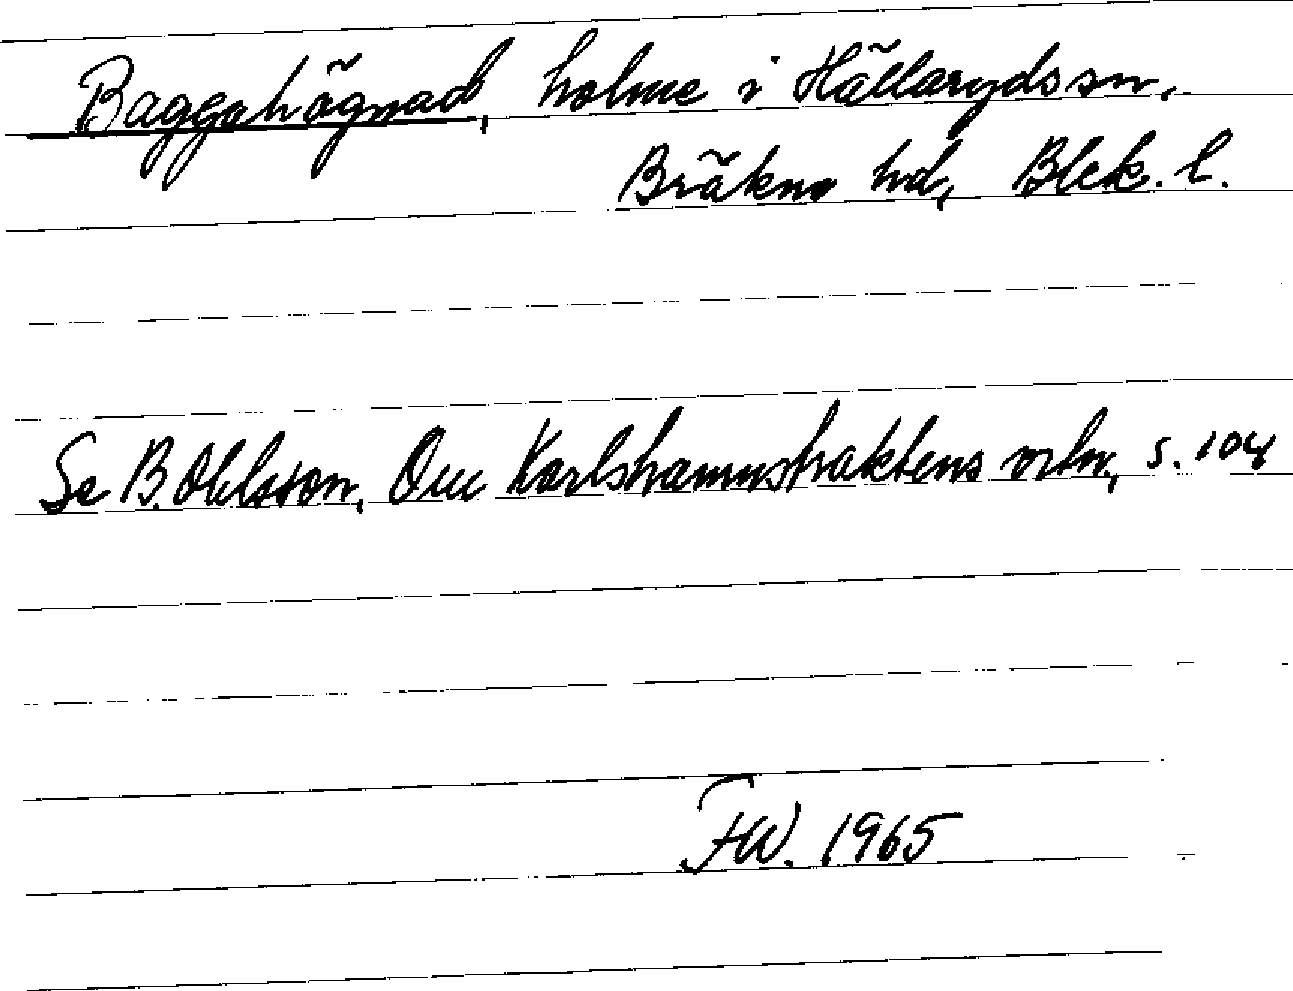 Baggahägnad, holme i Hällaryds sn,
Bräkne hd, Blek. l.
Se B. Ohlsson, Om Karlshamnstraktens ortn, s. 104
FW. 1965